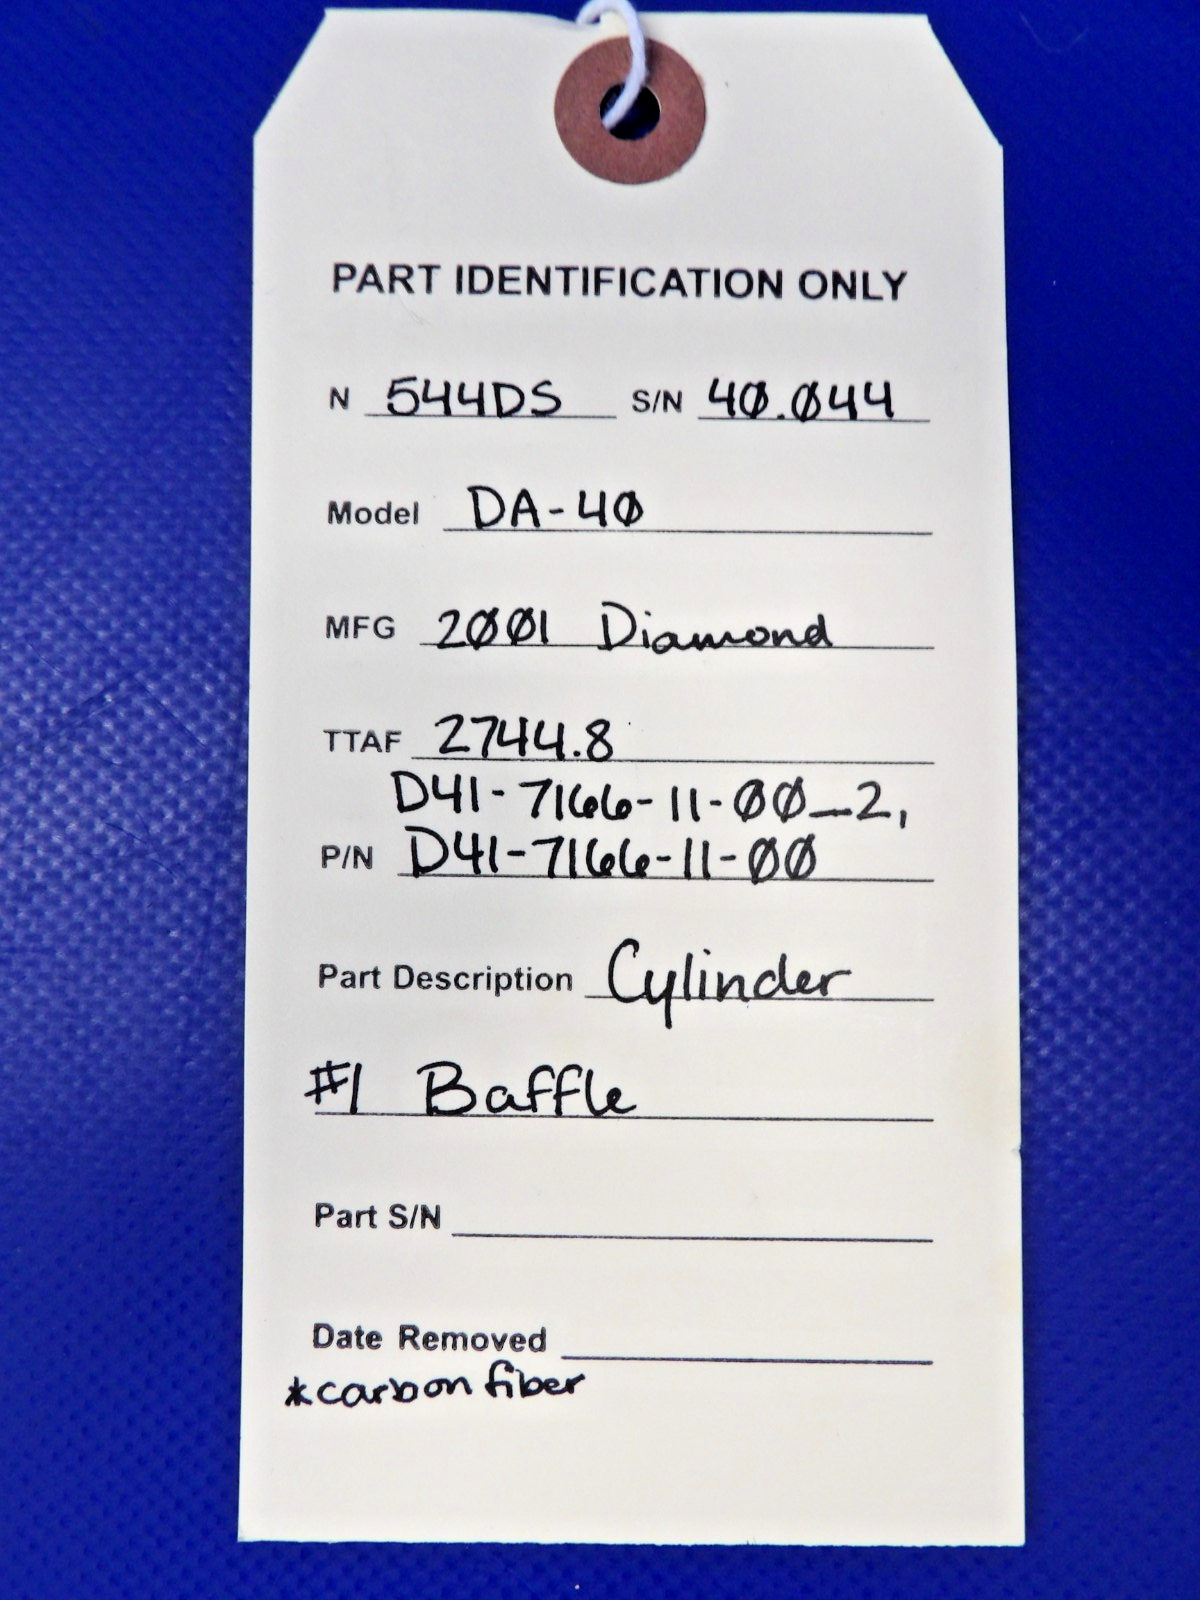 PART IDENTIFICATION ONLY
N 544DS S/N 40.044
Model DA-40
MFG 2001 Diamond
TTAF 2744.8
D41-7166-11-00_2,
P/N D41-7166-11-00
Part Description Cylinder
#1 Baffle
Part S/N
Date Removed
*carbon fiber